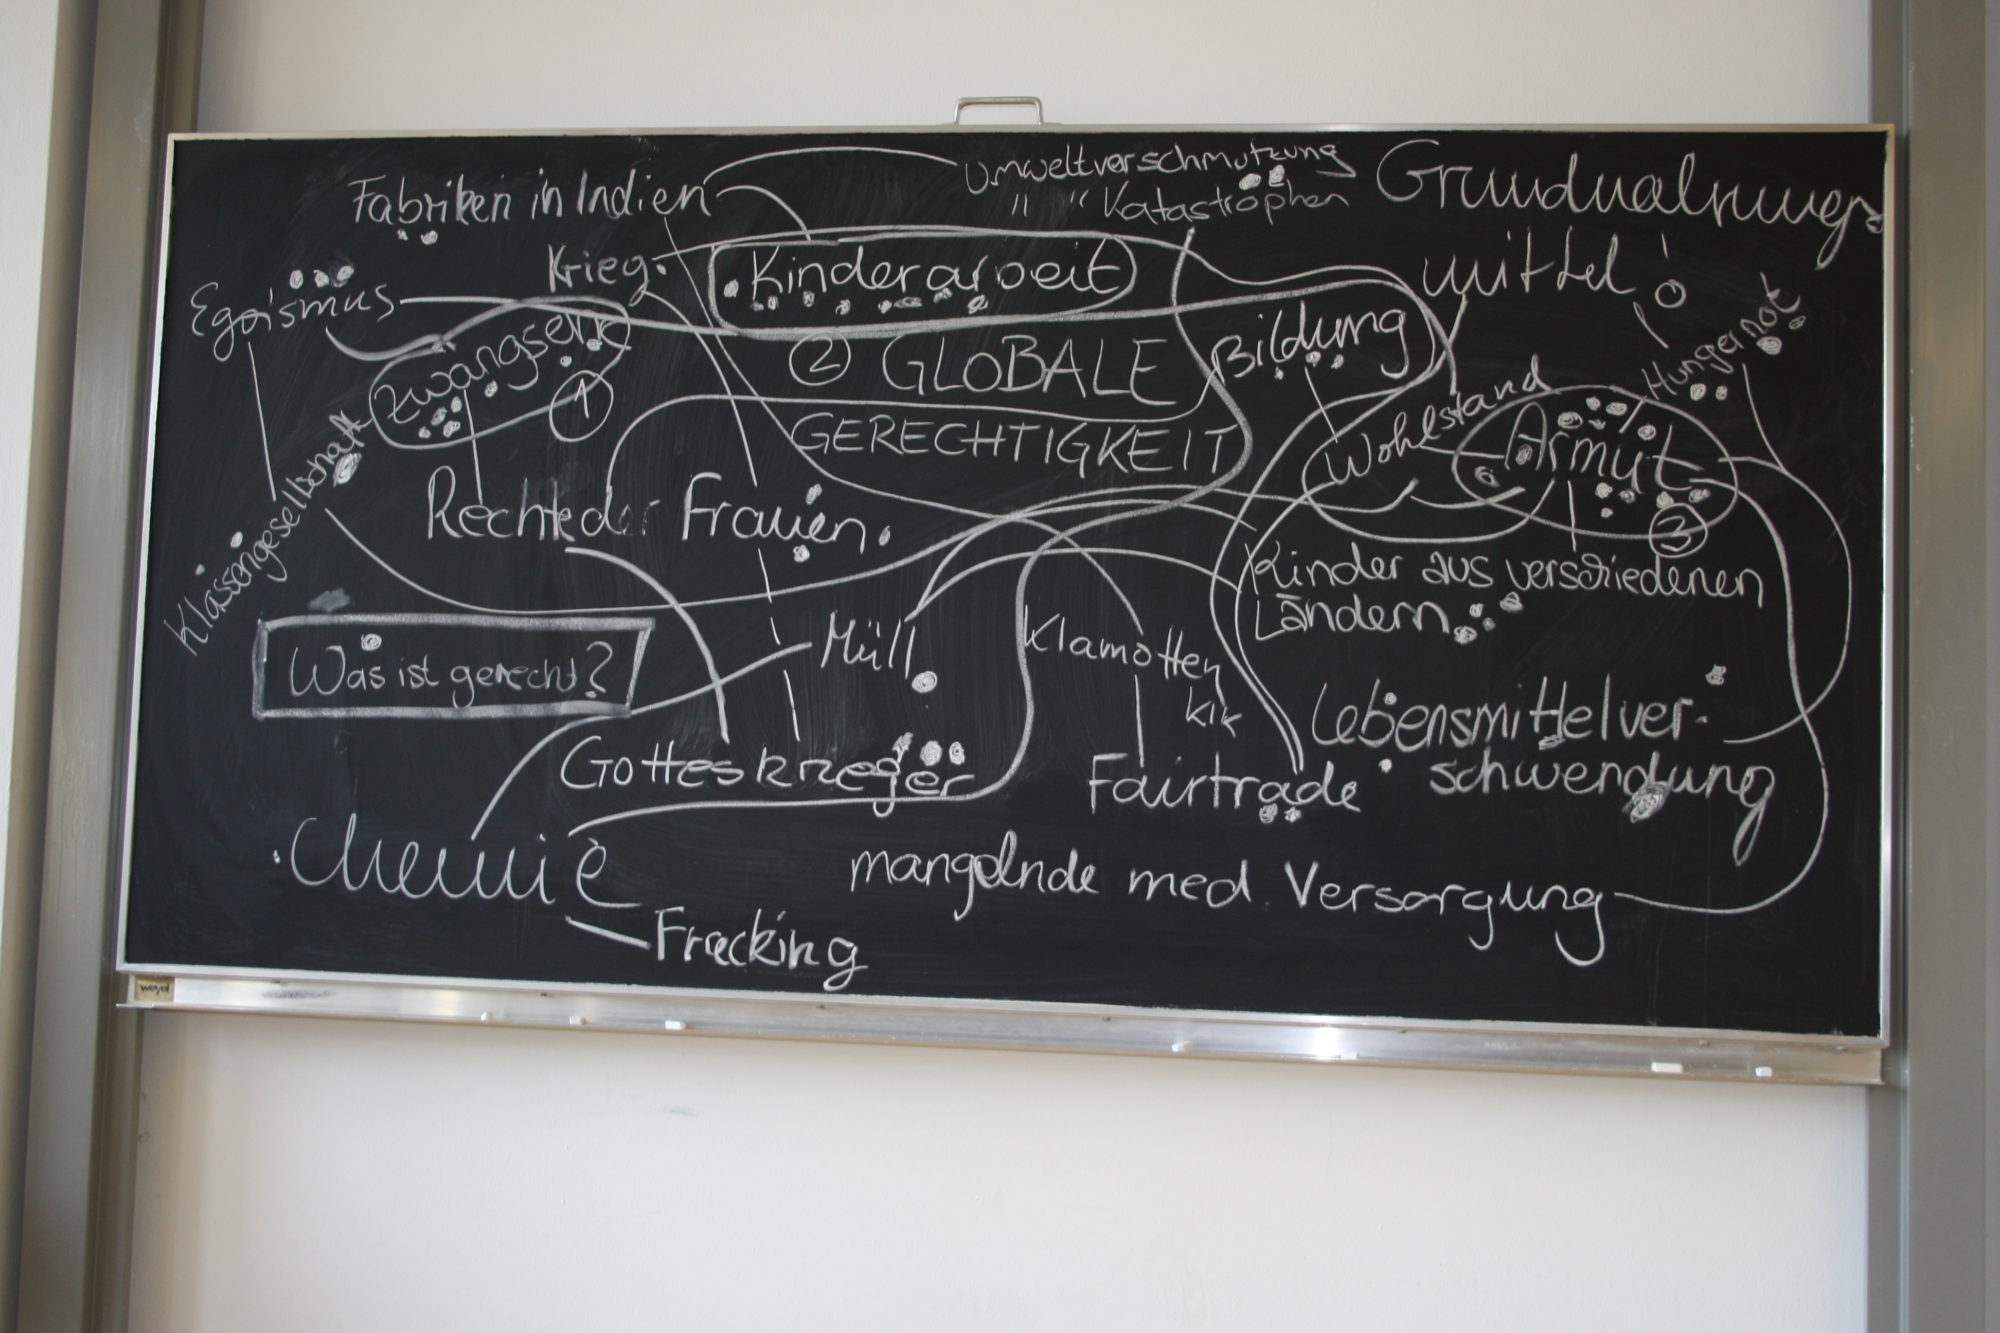 Umweltverschmutzung
" " Katastrophen
Fabriken in Indien
Grundnahrungs-
mittel
Krieg
Kinderarbeit
Egoismus
Hungernot
Bildung
② GLOBALE
GERECHTIGKEIT
①
Wohlstand
Armut
③
Klassengesellschaft
Rechte der Frauen
Kinder aus verschiedenen
Ländern
Was ist gerecht?
Müll
Klamotten
kik
Lebensmittelver-
schwendung
Gotteskrieger
Fairtrade
Chemie
mangelnde med. Versorgung
Fracking